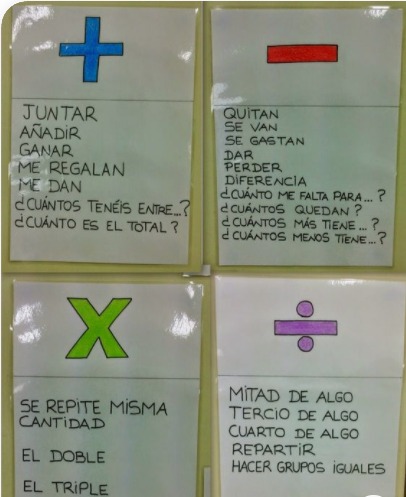 +
JUNTAR
AÑADIR
GANAR
ME REGALAN
ME DAN
¿CUÁNTOS TENÉIS ENTRE...?
¿CUÁNTO ES EL TOTAL?
−
QUITAN
SE VAN
SE GASTAN
DAR
PERDER
DIFERENCIA
¿CUÁNTO ME FALTA PARA...?
¿CUÁNTOS QUEDAN?
¿CUÁNTOS MÁS TIENE...?
¿CUÁNTOS MENOS TIENE...?
X
SE REPITE MISMA
CANTIDAD
EL DOBLE
EL TRIPLE
÷
MITAD DE ALGO
TERCIO DE ALGO
CUARTO DE ALGO
REPARTIR
HACER GRUPOS IGUALES